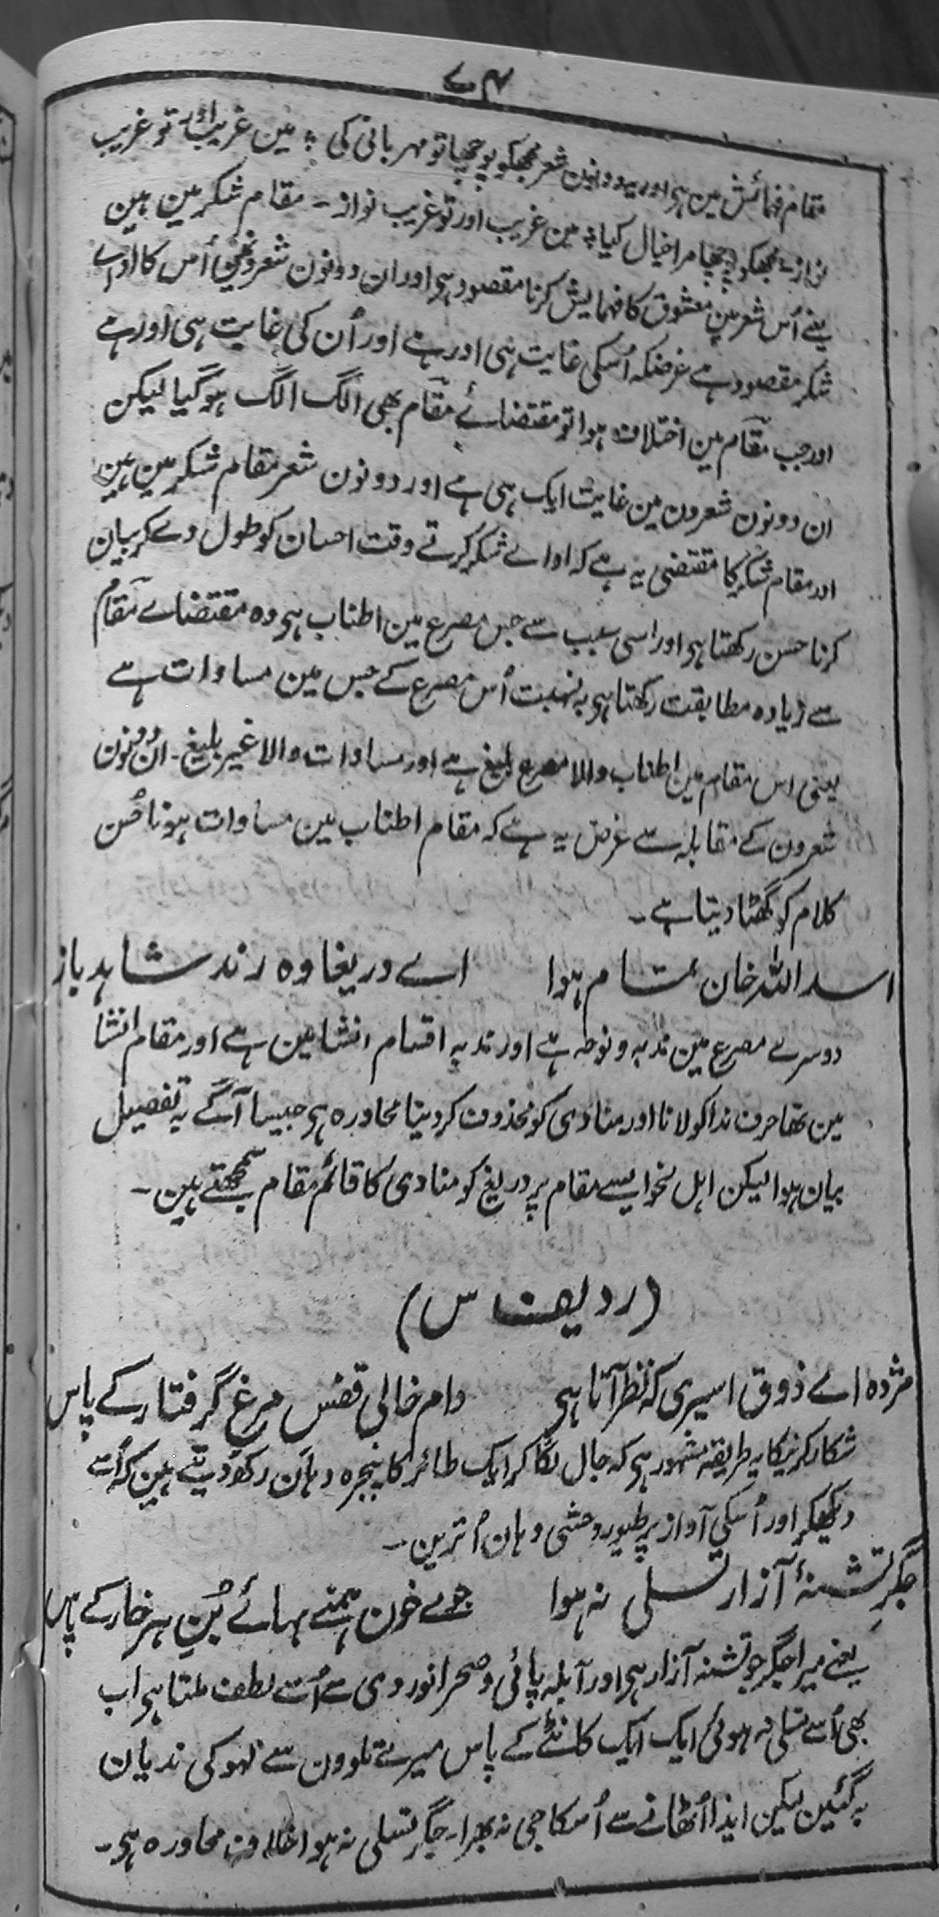 ۷۴
مقام فہمائش مین ہی اور یہ دونون شعر مجھکو پوچھا تو مہربانی کی ؛ مین غریب اور تو غریب
نواز ۔ مجھکو پوچھا مرا خیال کیا ؛ مین غریب اور تو غریب نواز ۔ مقام شکر مین ہین
یعنے اُس شعر مین معشوق کا فہمایش کرنا مقصود ہی اور ان دونون شعرونمین اُس کا اداے
شکر مقصود ہے غرضکہ اُسکی غایت ہی اور ہے اور اُن کی غایت ہی اور ہے
اور جب مقام مین اختلاف ہوا تو مقتضاے مقام بھی الگ الگ ہوگیا لیکن
ان دونون شعرون مین غایت ایک ہی ہے اور دونون شعر مقام شکر مین ہین
اور مقام شکر کا مقتضی یہ ہے کہ اداے شکر کرتے وقت احسان کو طول دے کر بیان
کرنا حسن رکھتا ہی اور اسی سبب سے جس مصرع مین اطناب ہی وہ مقتضاے مقام
سے زیادہ مطابقت رکھتا ہی بہ نسبت اُس مصرع کے جس مین مساوات ہے
یعنی اس مقام مین اطناب والا مصرع بلیغ ہے اور مساوات والا غیر بلیغ ۔ ان دونون
شعرون کے مقابلہ سے غرض یہ ہے کہ مقام اطناب مین مساوات ہونا حُسن
کلام کو گھٹا دیتا ہے ۔
اسد اللہ خان تمام ہوا اے دریغا وہ رند شاہد باز
دوسرے مصرع مین ندبہ و نوحہ ہے اور ندبہ اقسام انشا مین ہے اور مقام انشا
مین تھا حرف ندا کو لانا اور منادی کو محذوف کردینا محاورہ ہی جیسا آگے بہ تفصیل
بیان ہوا لیکن اہل نحو ایسے مقام پر دریغ کو منادی کا قائم مقام سمجھتے ہین ۔
(ردیف س)
مژدہ اے ذوق اسیری کہ نظر آتا ہی دام خالی قفس مرغ گرفتار کے پاس
شکار کرنیکا یہ طریقہ مشہور ہی کہ جال لگا کر ایک طائر کا پنجرہ وہان رکھ دیتے ہین کہ اُسے
دیکھکر اور اُسکی آواز پر طیور وحشی وہان اُترین ۔
جگر تشنۂ آزار تسلی نہ ہوا جوے خون ہمنے بہائے بُن ہر خار کے پاس
یعنے میرا جگر جو تشنہ آزار ہی اور آبلہ پائی و صحرا نوردی سے اُسے لطف ملتا ہی اب
بھی اُسے تسلی نہ ہوئی ایک ایک کانٹے کے پاس میرے تلوون سے لہو کی ندیان
بہ گئین لیکن ایذا اُٹھانے سے اُسکا جی نہ بھرا ۔ جگر تسلی نہ ہوا خلاف محاورہ ہی ۔